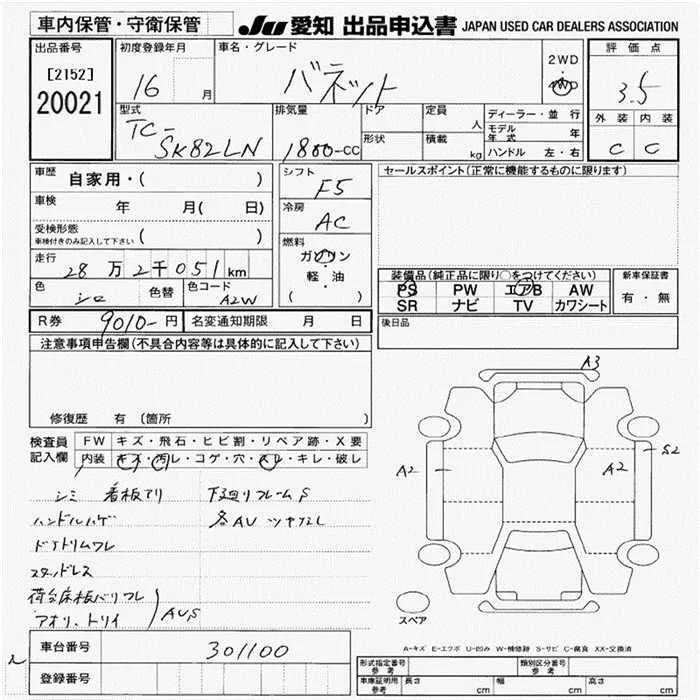 車内保管・守衛保管
JU 愛知 出品申込書 JAPAN USED CAR DEALERS ASSOCIATION
出品番号
[2152]
20021
初度登録年月
16 月
車名・グレード
バネット
2WD
4WD
評価点
3.5
外装 内装
C C
型式
TC-
SK82LN
排気量
1800-CC
ドア
形状
定員 人
積載 kg
ディーラー・並行
モデル年式 年
ハンドル 左・右
車歴 自家用・( )
車検 年 月( 日)
受検形態
車検付きのみ記入して下さい ( )
走行
28万2千051km
色 シロ 色替
色コード A2W
シフト F5
冷房 AC
燃料
ガソリン
軽・油
( )
セールスポイント(正常に機能するものに限ります)
装備品(純正品に限り○をつけてください)
PS PW エアB AW
SR ナビ TV カワシート
新車保証書
有・無
R券 9010-円 名変通知期限 月 日
後日品
注意事項申告欄(不具合内容等は具体的に記入して下さい)
修復歴 有(箇所 )
検査員記入欄
FW キズ・飛石・ヒビ割・リペア跡・X要
内装 キズ・汚レ・コゲ・穴・スレ・キレ・破レ
シミ 看板アリ 下廻りフレームS
ハンドルハゲ 各AU ツヤナシ
ドアトリムワレ
スタッドレス
荷台床板バリ フレ
アオリ、トリイ AUS
A3
A2
A2
S2
スペア
A-キズ E-エクボ U-凹み W-補修跡 S-サビ C-腐食 XX-交換済
車台番号 301100
登録番号
形式指定番号 参考
類別区分番号 参考
車庫証明用 参考 長さ cm 幅 cm 高さ cm